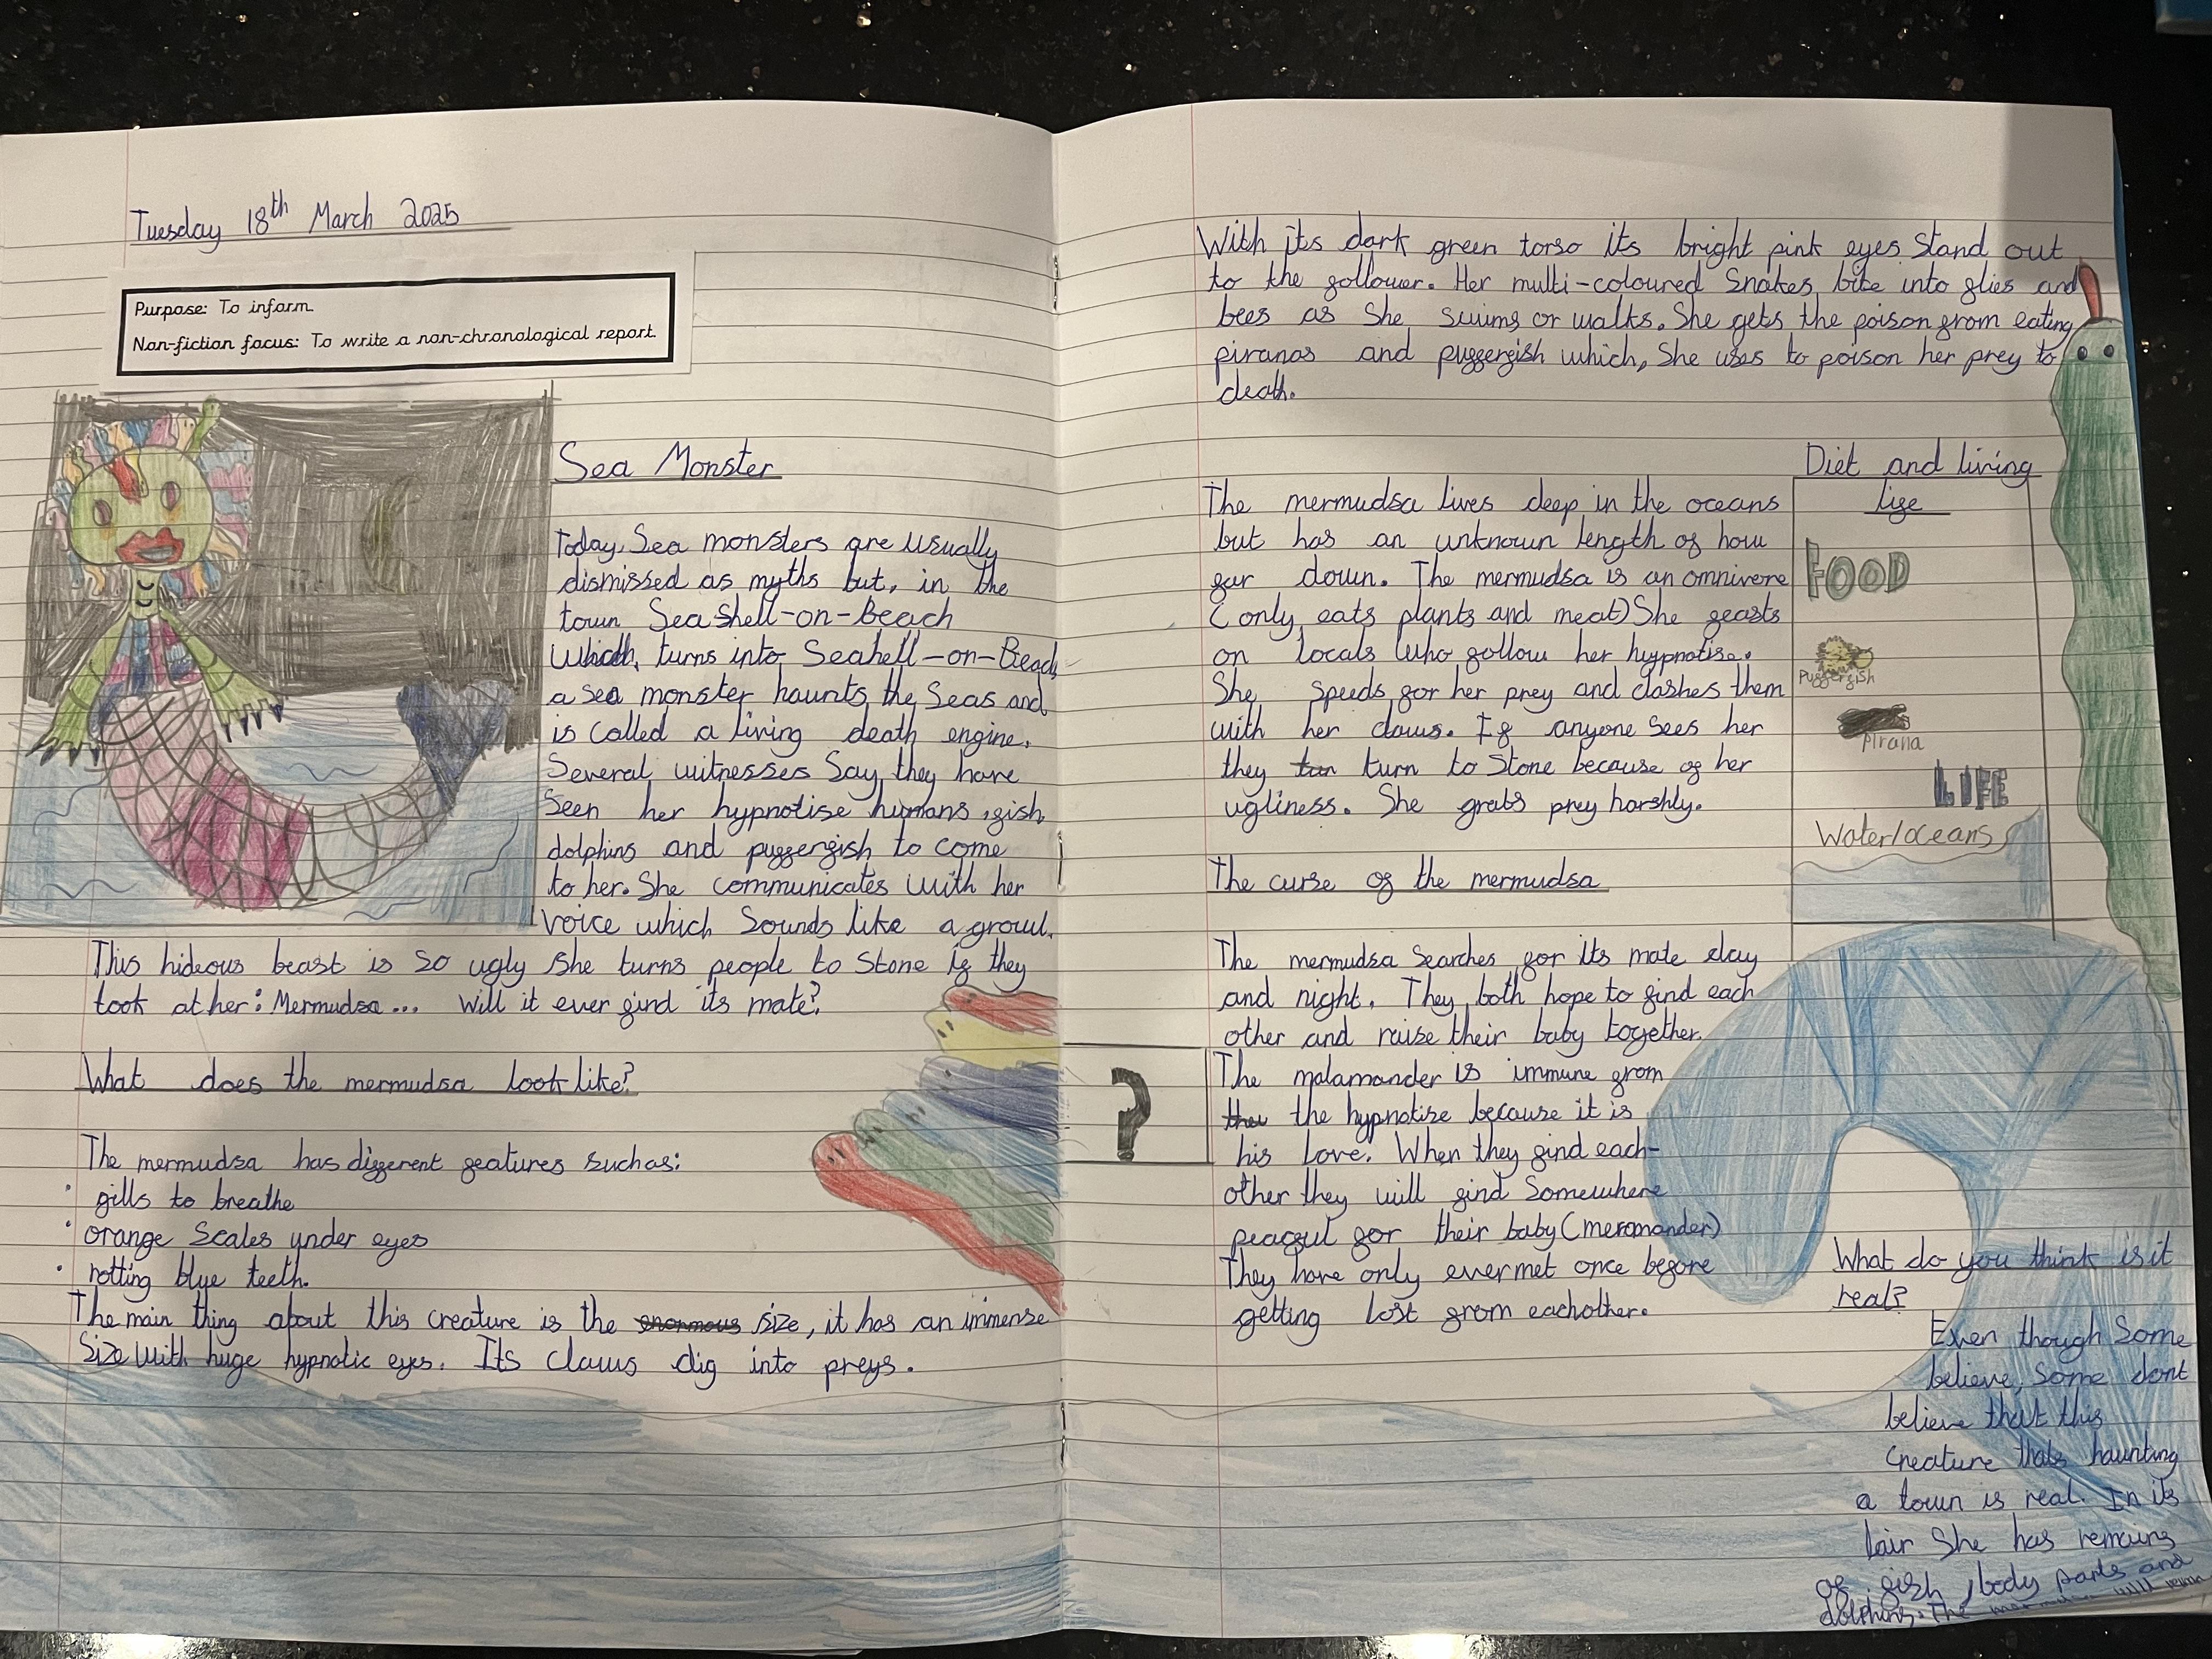 Tuesday 18th March 2025
Purpose: To inform.
Non-fiction focus: To write a non-chronological report.
Sea Monster
Today, Sea monsters are usually
dismissed as myths but, in the
town Sea shell-on-Beach
which, turns into Seahell-on-Beach
a sea monster haunts the Seas and
is called a living death engine.
Several witnesses Say they have
seen her hypnotise humans, fish,
dolphins and pufferfish to come
to her. She communicates with her
voice which Sounds like a growl.
This hideous beast is so ugly she turns people to stone if they
look at her: Mermudsa... Will it ever find its mate?
What does the mermudsa look like?
The mermudsa has different features such as:
• gills to breathe
• orange scales under eyes
• rotting blue teeth.
The main thing about this creature is the enormous size, it has an immense
size with huge hypnotic eyes. Its claws dig into preys.
With its dark green torso its bright pink eyes stand out
to the follower. Her multi-coloured snakes bite into flies and
bees as she swims or walks. She gets the poison from eating
piranas and pufferfish which, she uses to poison her prey to
death.
Diet and living
life
FOOD
Pufferfish
Pirana
LIFE
Water/oceans
The mermudsa lives deep in the oceans
but has an unknown length of how
far down. The mermudsa is an omnivore
(only eats plants and meat) She feasts
on locals who follow her hypnotise.
She speeds for her prey and clashes them
with her claws. If anyone sees her
they turn to stone because of her
ugliness. She grabs prey harshly.
The curse of the mermudsa
The mermudsa searches for its mate day
and night. They both hope to find each
other and raise their baby together.
?
The malamander is immune from
the hypnotise because it is
his love. When they find each-
other they will find somewhere
peacful for their baby (mermander)
They have only ever met once before
getting lost from eachother.
What do you think is it
real?
Even though some
believe, some dont
believe that this
creature thats haunting
a town is real. In its
lair she has remains
of fish, body parts and
dolphins. The